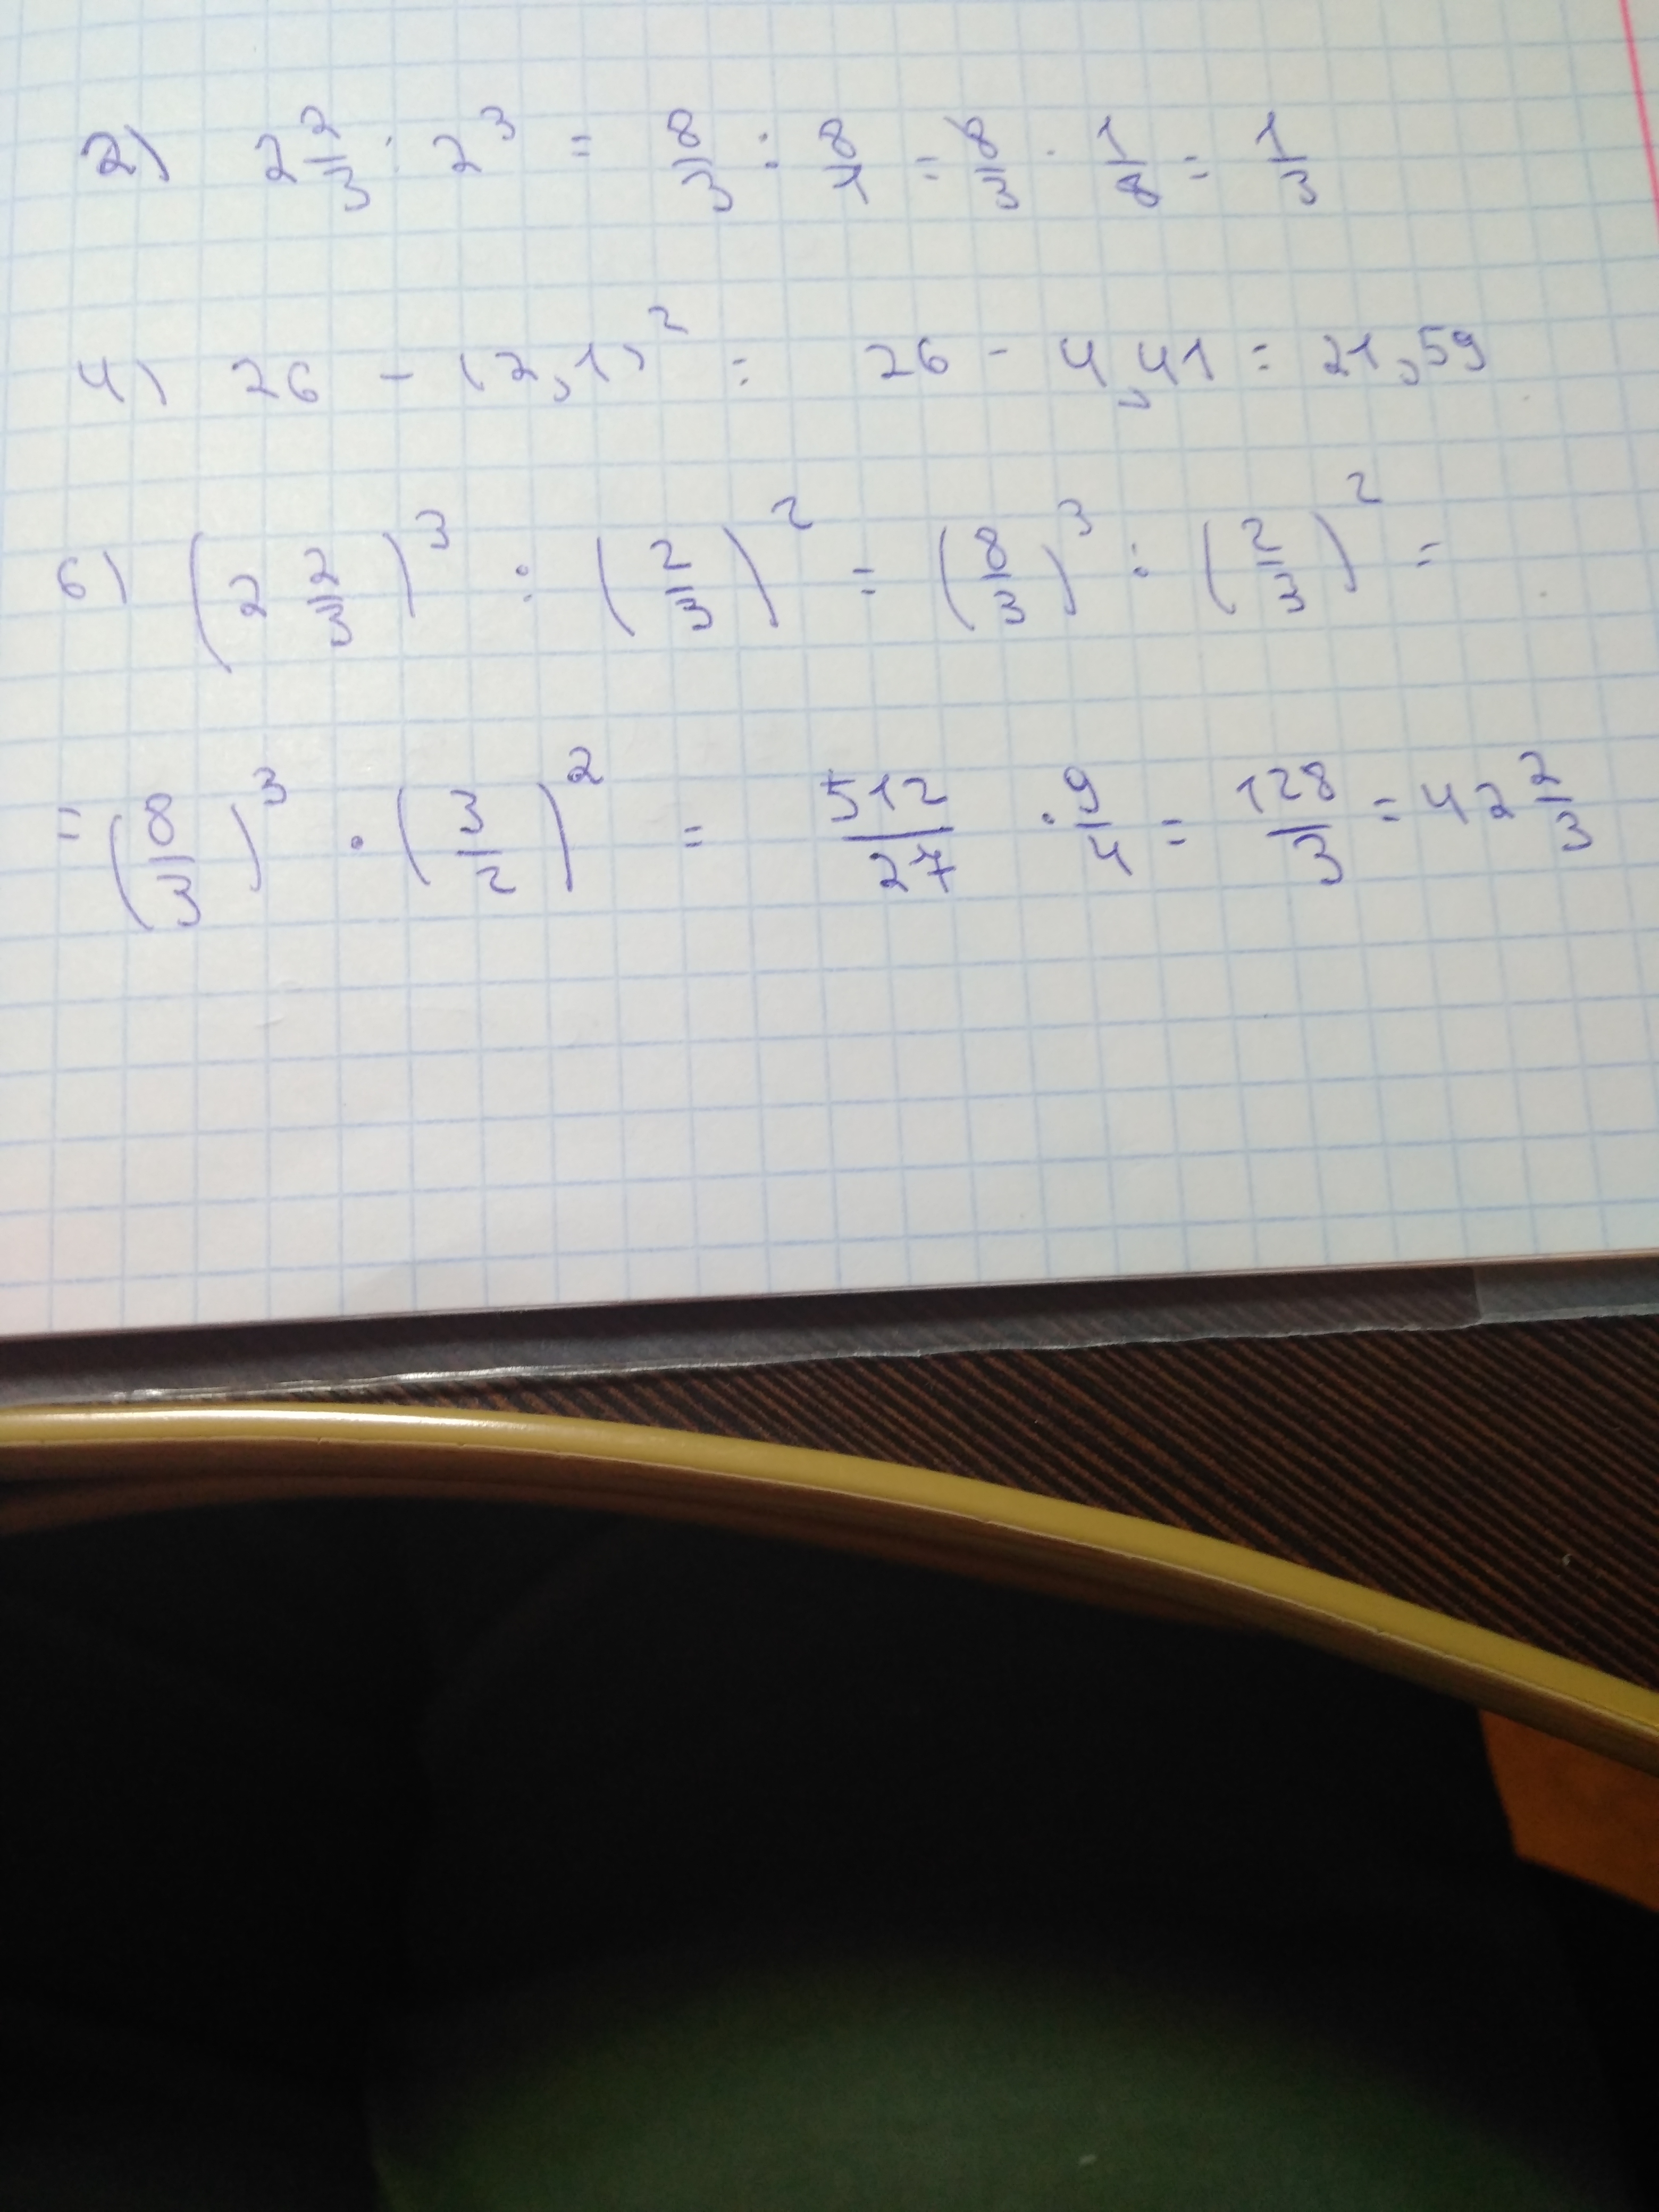 2) 2 2/3 : 2³ = 8/3 : 8/1 = 8/3 · 1/8 = 1/3
4) 26 - (2,1)² = 26 - 4,41 = 21,59
6) (2 2/3)³ : (2/3)² = (8/3)³ : (2/3)² =
= (8/3)³ · (3/2)² = 512/27 · 9/4 = 128/3 = 42 2/3